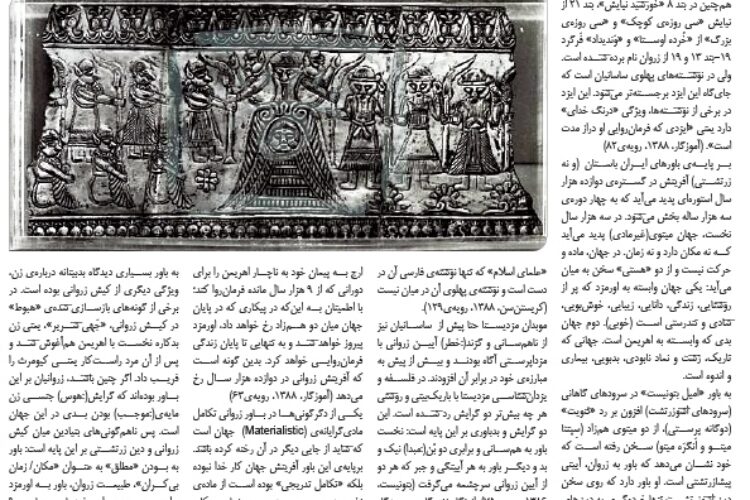 هم‌چنین در بند ۸ «خورشید نیایش»، بند ۲۱ از
نیایش «سی روزه‌ی کوچک» و «سی روزه‌ی
بزرگ» از «خُرده اوستا» و «وَندیداد» فَرگَرد
۱۹-بند ۱۳ و ۱۹ از زروان نام برده شده است.
ولی در نوشته‌های پهلوی ساسانیان است که
جای‌گاه این ایزد برجسته‌تر می‌شود. این ایزد
در برخی از نوشته‌ها، ویژگی «درنگ خدای»
دارد یعنی «ایزدی که فرمان‌روایی او دراز مدت
است». (آموزگار، ۱۳۸۸، رویه‌ی ۸۲)
بر پایه‌ی باورهای ایران باستان (و نه
زرتشتی) آفرینش در گستره‌ی دوازده هزار
سال استوره‌ای پدید می‌آید که به چهار دوره‌ی
سه هزار ساله بخش می‌شود. در سه هزار سال
نخست، جهان مینوی(غیرمادی) پدید می‌آید
که نه مکان دارد و نه زمان. در جهان، ماده و
حرکت نیست و از دو «هستی» سخن به میان
می‌آید: یکی جهان وابسته به اورمزد که پر از
روشنایی، زندگی، دانایی، زیبایی، خوش‌بویی،
شادی و تندرستی است (خوبی). دوم جهان
بدی که وابسته به اهریمن است. جهانی که
تاریک، زشت و نماد نابودی، بدبویی، بیماری
و اندوه است.
به باور «امیل بنونیست» در سرودهای گاهانی
(سرودهای اشوزرتشت) افزون بر رد «ثنویت»
(دوگانه پرستی)، از دو مینوی هم‌زاد (سپنتا
مینو و انگره مینو) سخن رفته است که
خود نشان می‌دهد که باور به زروان، آیینی
پیشازرتشتی است. او باور دارد که روی سخن
«علمای اسلام» که تنها نوشته‌ی فارسی آن در
دست است و نوشته‌ی پهلوی آن در میان نیست
(کریستن‌سن، ۱۳۸۸، رویه‌ی ۱۳۹).
موبدان مزدیستا حتا پیش از ساسانیان نیز
از ناهم‌سانی و گزند(:خطر) آیین زروانی با
مزداپرستی آگاه بودند و بیش از پیش به
مبارزه‌ی خود در برابر آن افزودند. در فلسفه و
یزدان‌شناسی مزدیستا با باریک‌بینی و روشنی
هر چه بیش‌تر دو گرایش رد شده است. این
دو گرایش و بدباوری بر این پایه است: نخست
باور به هم‌سانی و برابری دو بُن(عبدا) نیک و
بد و دیگر باور به هر آیینگی و جبر که هر دو
از آیین زروانی سرچشمه می‌گرفت (بنونیست،
ارج به پیمان خود به ناچار اهریمن را برای
دورانی که از ۹ هزار سال مانده فرمان‌روا کند؛
با اطمینان به این‌که در پیکاری که در پایان
جهان میان دو هم‌زاد رخ خواهد داد، اورمزد
پیروز خواهد شد و به تنهایی تا پایان زندگی
فرمان‌روایی خواهد کرد. بدین گونه است
که آفرینش زروانی در دوازده هزار سال رخ
می‌دهد (آموزگار، ۱۳۸۸، رویه‌ی ۶۳)
یکی از دگرگونی‌ها در باور زروانی تکامل
مادی‌گرایانه‌ی (Materialistic) جهان است
که شاید از جایی دیگر در آن رخنه کرده باشد.
برپایه‌ی این باور آفرینش جهان کار خدا نبوده
بلکه «تکامل تدریجی» بوده است از ماده‌ی
به باور بسیاری دیدگاه بدبینانه درباره‌ی زن،
ویژگی دیگری از کیش زروانی بوده است. در
برخی از گونه‌های بازسازی‌شده‌ی «هبوط»
در کیش زروانی، «جَهی شریر»، یعنی زن
بدکاره نخست با اهریمن هم‌آغوش شد و
پس از آن مرد راست‌کار یعنی کیومرث را
فریب داد. اگر چنین باشد، زروانیان بر این
باور بوده‌اند که گرایش(:هوس) جنسی زن
مایه‌ی(:موجب) بودن بدی در این جهان
است. پس ناهم‌گونی‌های بنیادین میان کیش
زروانی و دین زرتشتی بر این پایه است: باور
به بودن «مطلق» به عنوان «مکان/زمان
بی‌کران»، طبیعت زروان، باور به اورمزد